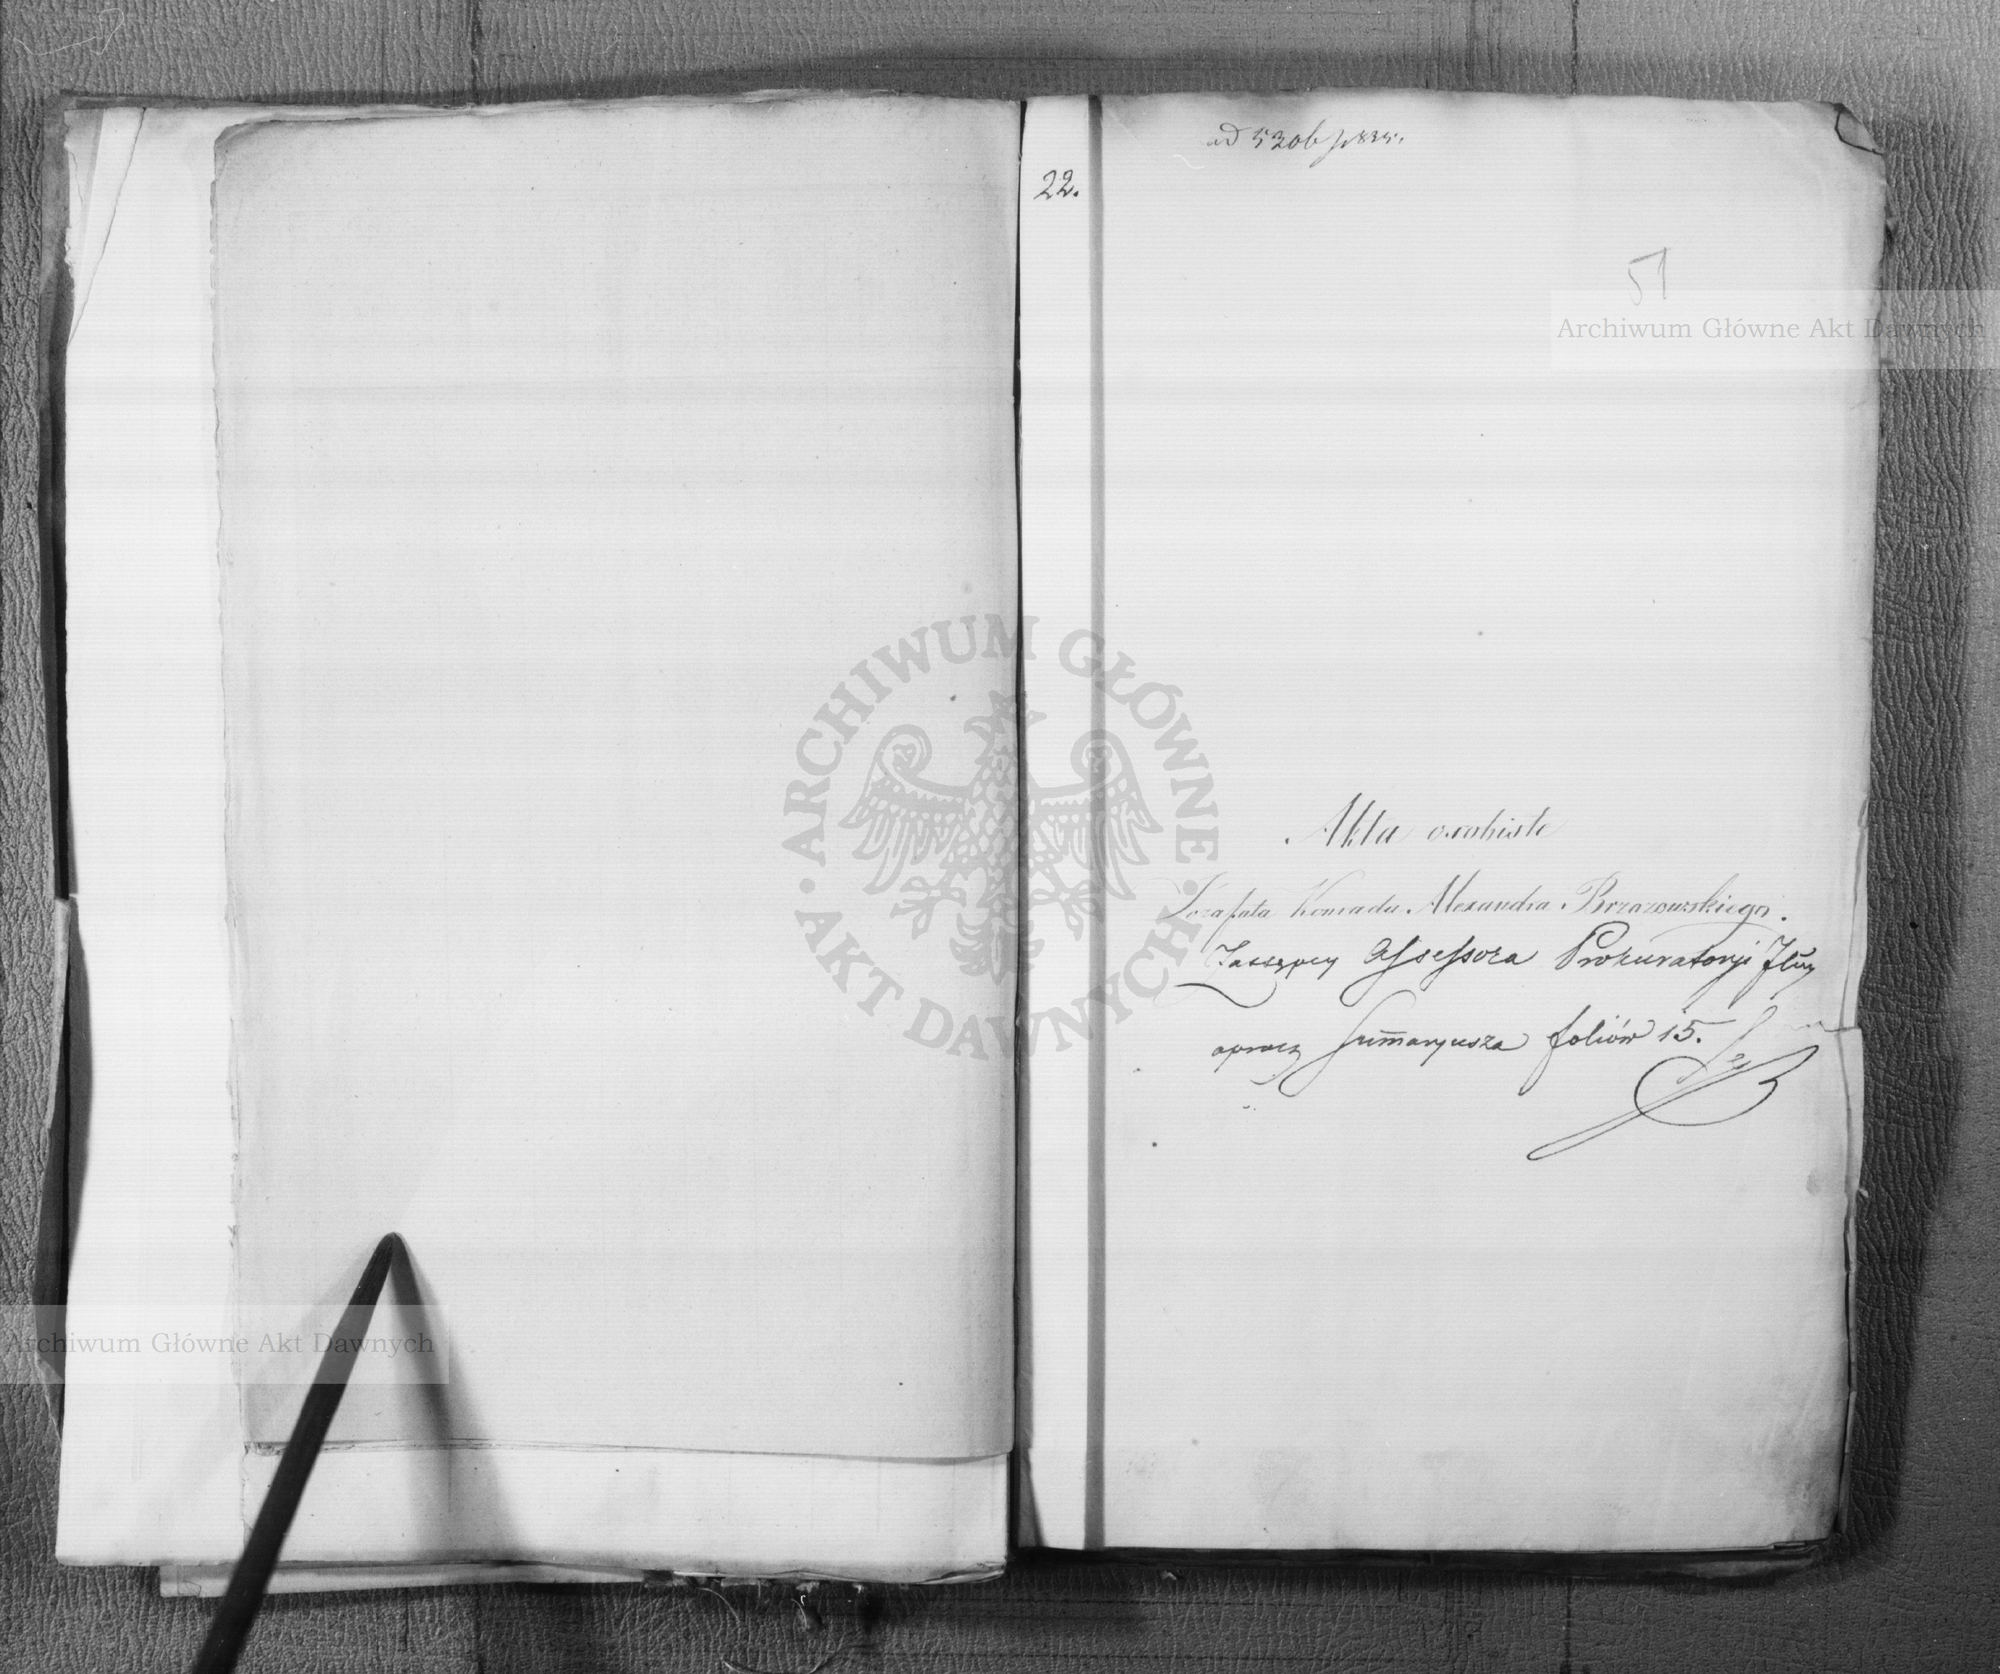 ad 5306/1835.
22.
51
Archiwum Główne Akt Dawnych
ARCHIWUM GŁÓWNE · AKT DAWNYCH ·
Akta osobiste
Jozafata Konrada Alexandra Brzozowskiego.
Zastępcy Assessora Prokuratorji
oprócz Summaryusza foliów 15.
Archiwum Główne Akt Dawnych